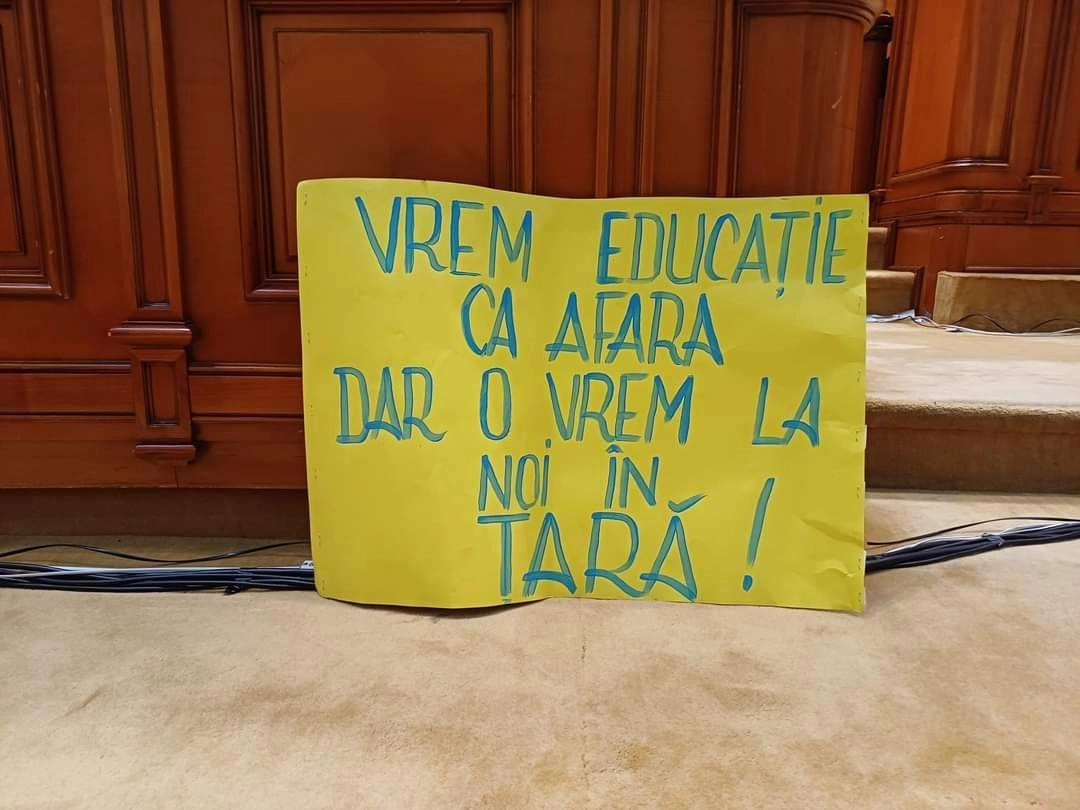 VREM EDUCAȚIE
CA AFARA
DAR O VREM LA
NOI ÎN
ȚARĂ !